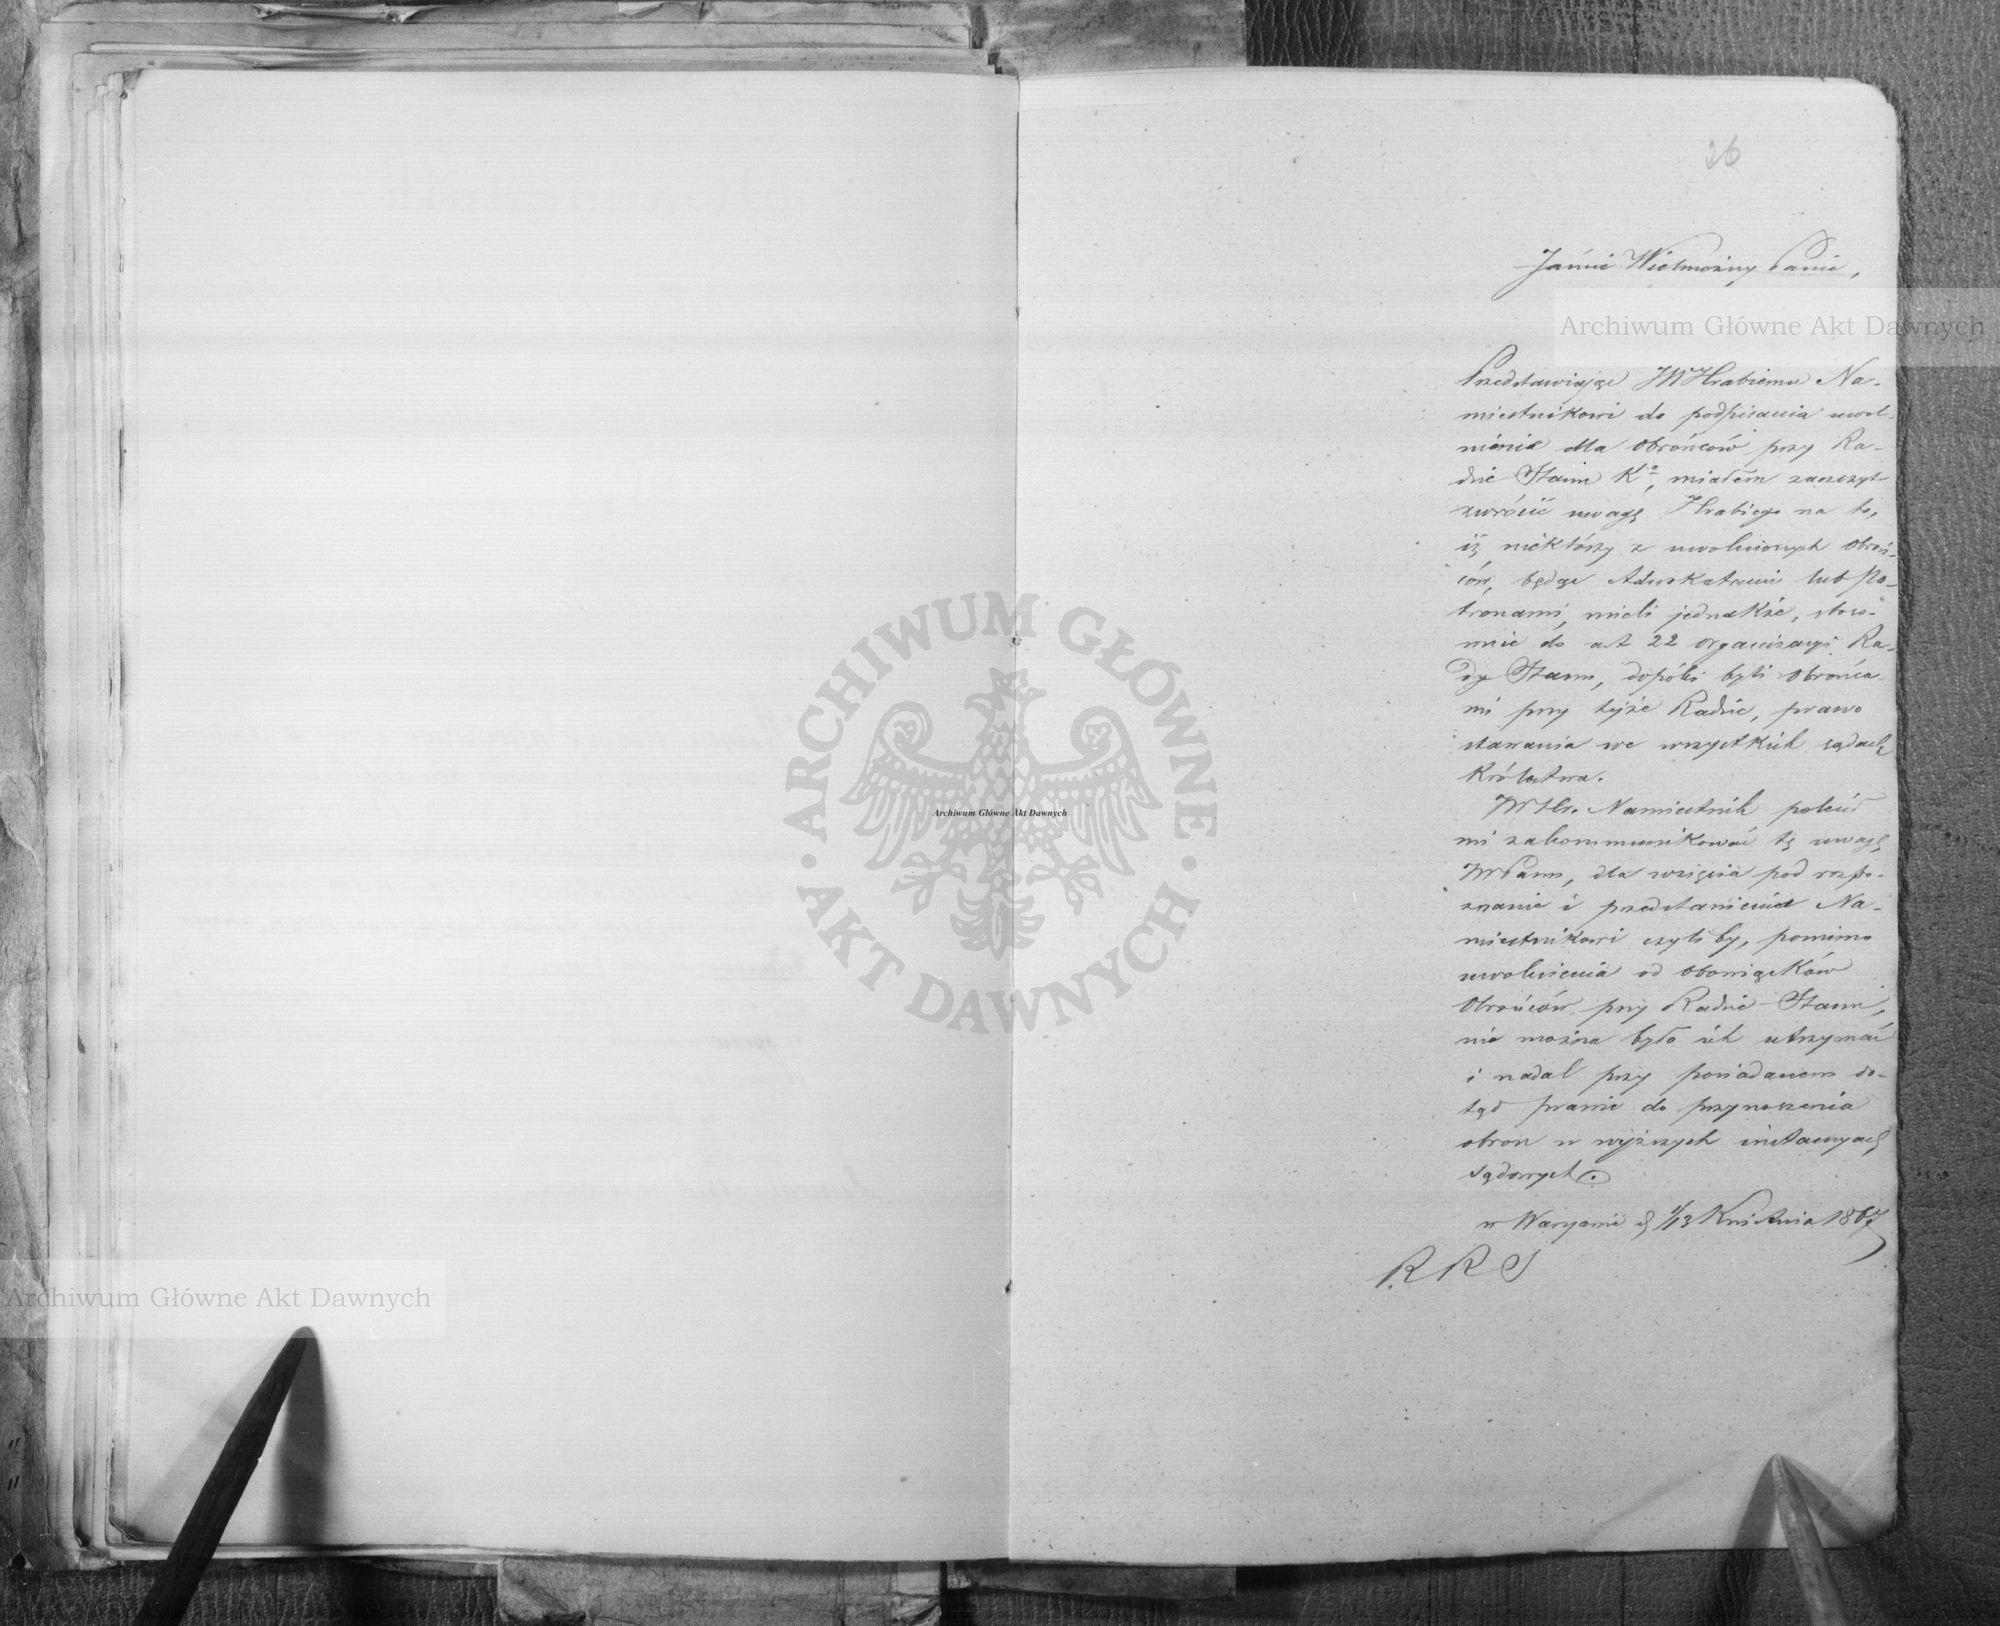 26
Jaśnie Wielmożny Panie,
Przedstawiając JW Hrabiemu Na-
miestnikowi do podpisania uwol-
nienia dla Obrońców przy Ra-
dzie Stanu K<sup>a</sup>, miałem zaszczyt
zwrócić uwagę Hrabiego na to,
iż niektórzy z uwolnionych Obroń-
ców, będąc Adwokatami lub Pa-
tronami, mieli jednakże, stoso-
wnie do art 22 organizacyi Ra-
dy Stanu, dopóki byli Obrońca-
mi przy tejże Radzie, prawo
stawania we wszystkich sądach
Królestwa.
JW Hr. Namiestnik polecił
mi zakommunikować tę uwagę
JWPanu, dla wzięcia pod rozpo-
znanie i przedstawienia Na-
miestnikowi czyliby, pomimo
uwolnienia od obowiązków
Obrońców przy Radzie Stanu,
nie można było ich utrzymać
i nadal przy posiadanem do-
tąd prawie do przynoszenia
obron w wyższych instancyach
sądowych.
w Warszawie d 1/13 Kwietnia 1867
R R S
Archiwum Główne Akt Dawnych
Archiwum Główne Akt Dawnych
ARCHIWUM GŁÓWNE AKT DAWNYCH
Archiwum Główne Akt Dawnych